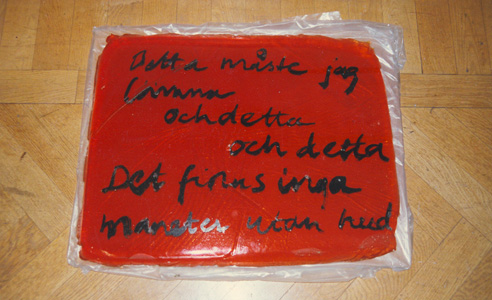 Detta måste jag
lämna
och detta
och detta
Det finns inga
monster utan hud